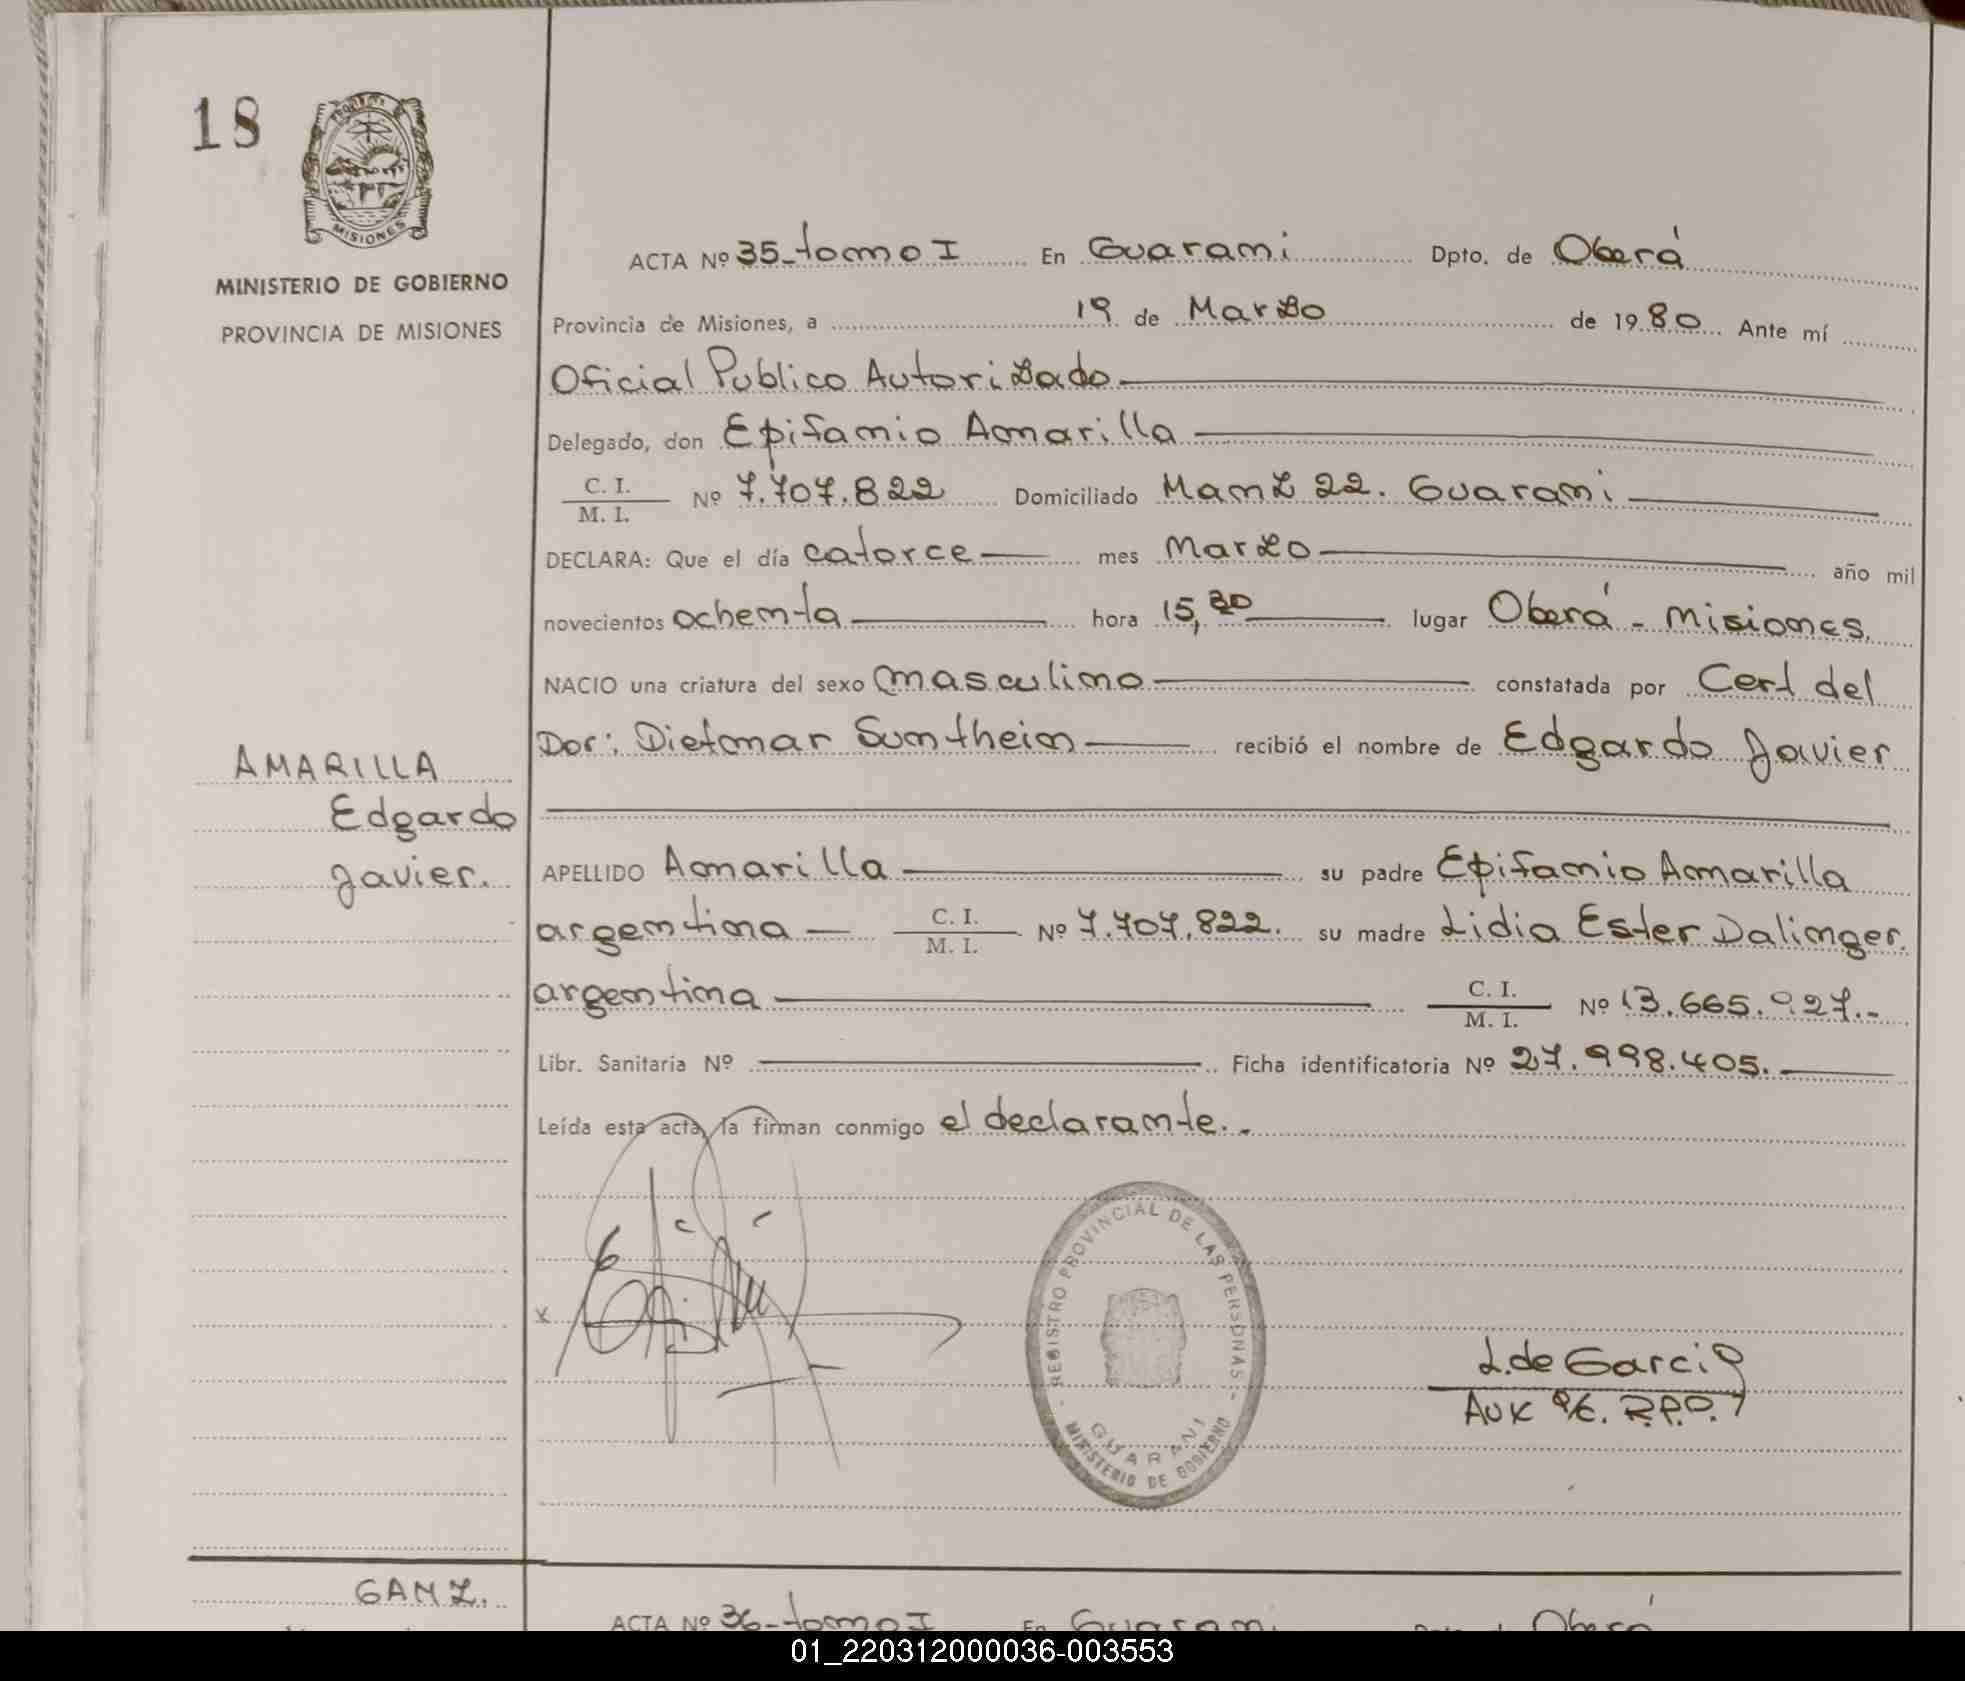 18
MISIONES
MINISTERIO DE GOBIERNO
PROVINCIA DE MISIONES
AMARILLA
Edgardo
Javier.
ACTA Nº 35-tomo I En Guarani Dpto. de Oberá
Provincia de Misiones, a 19 de Marzo de 1980 Ante mí
Oficial Publico Autorizado
Delegado, don Epifanio Amarilla
C. I.
M. I. Nº 7.707.822 Domiciliado Manz 22. Guarani
DECLARA: Que el día catorce mes Marzo año mil
novecientos ochenta hora 15,30 lugar Oberá - Misiones.
NACIO una criatura del sexo masculino constatada por Cert del
Dor: Dietmar Suntheim recibió el nombre de Edgardo Javier
APELLIDO Amarilla su padre Epifanio Amarilla
argentina C. I.
M. I. Nº 7.707.822. su madre Lidia Ester Dalinger.
argentina C. I.
M. I. Nº 13.665.927.-
Libr. Sanitaria Nº Ficha identificatoria Nº 27.998.405.
Leída esta acta, la firman conmigo el declarante..
REGISTRO PROVINCIAL DE LAS PERSONAS
GUARANI
MINISTERIO DE GOBIERNO
L. de Garcia
Aux R.P.P.
GANZ.
ACTA Nº 36-tomo I En Guarani Oberá
01_220312000036-003553